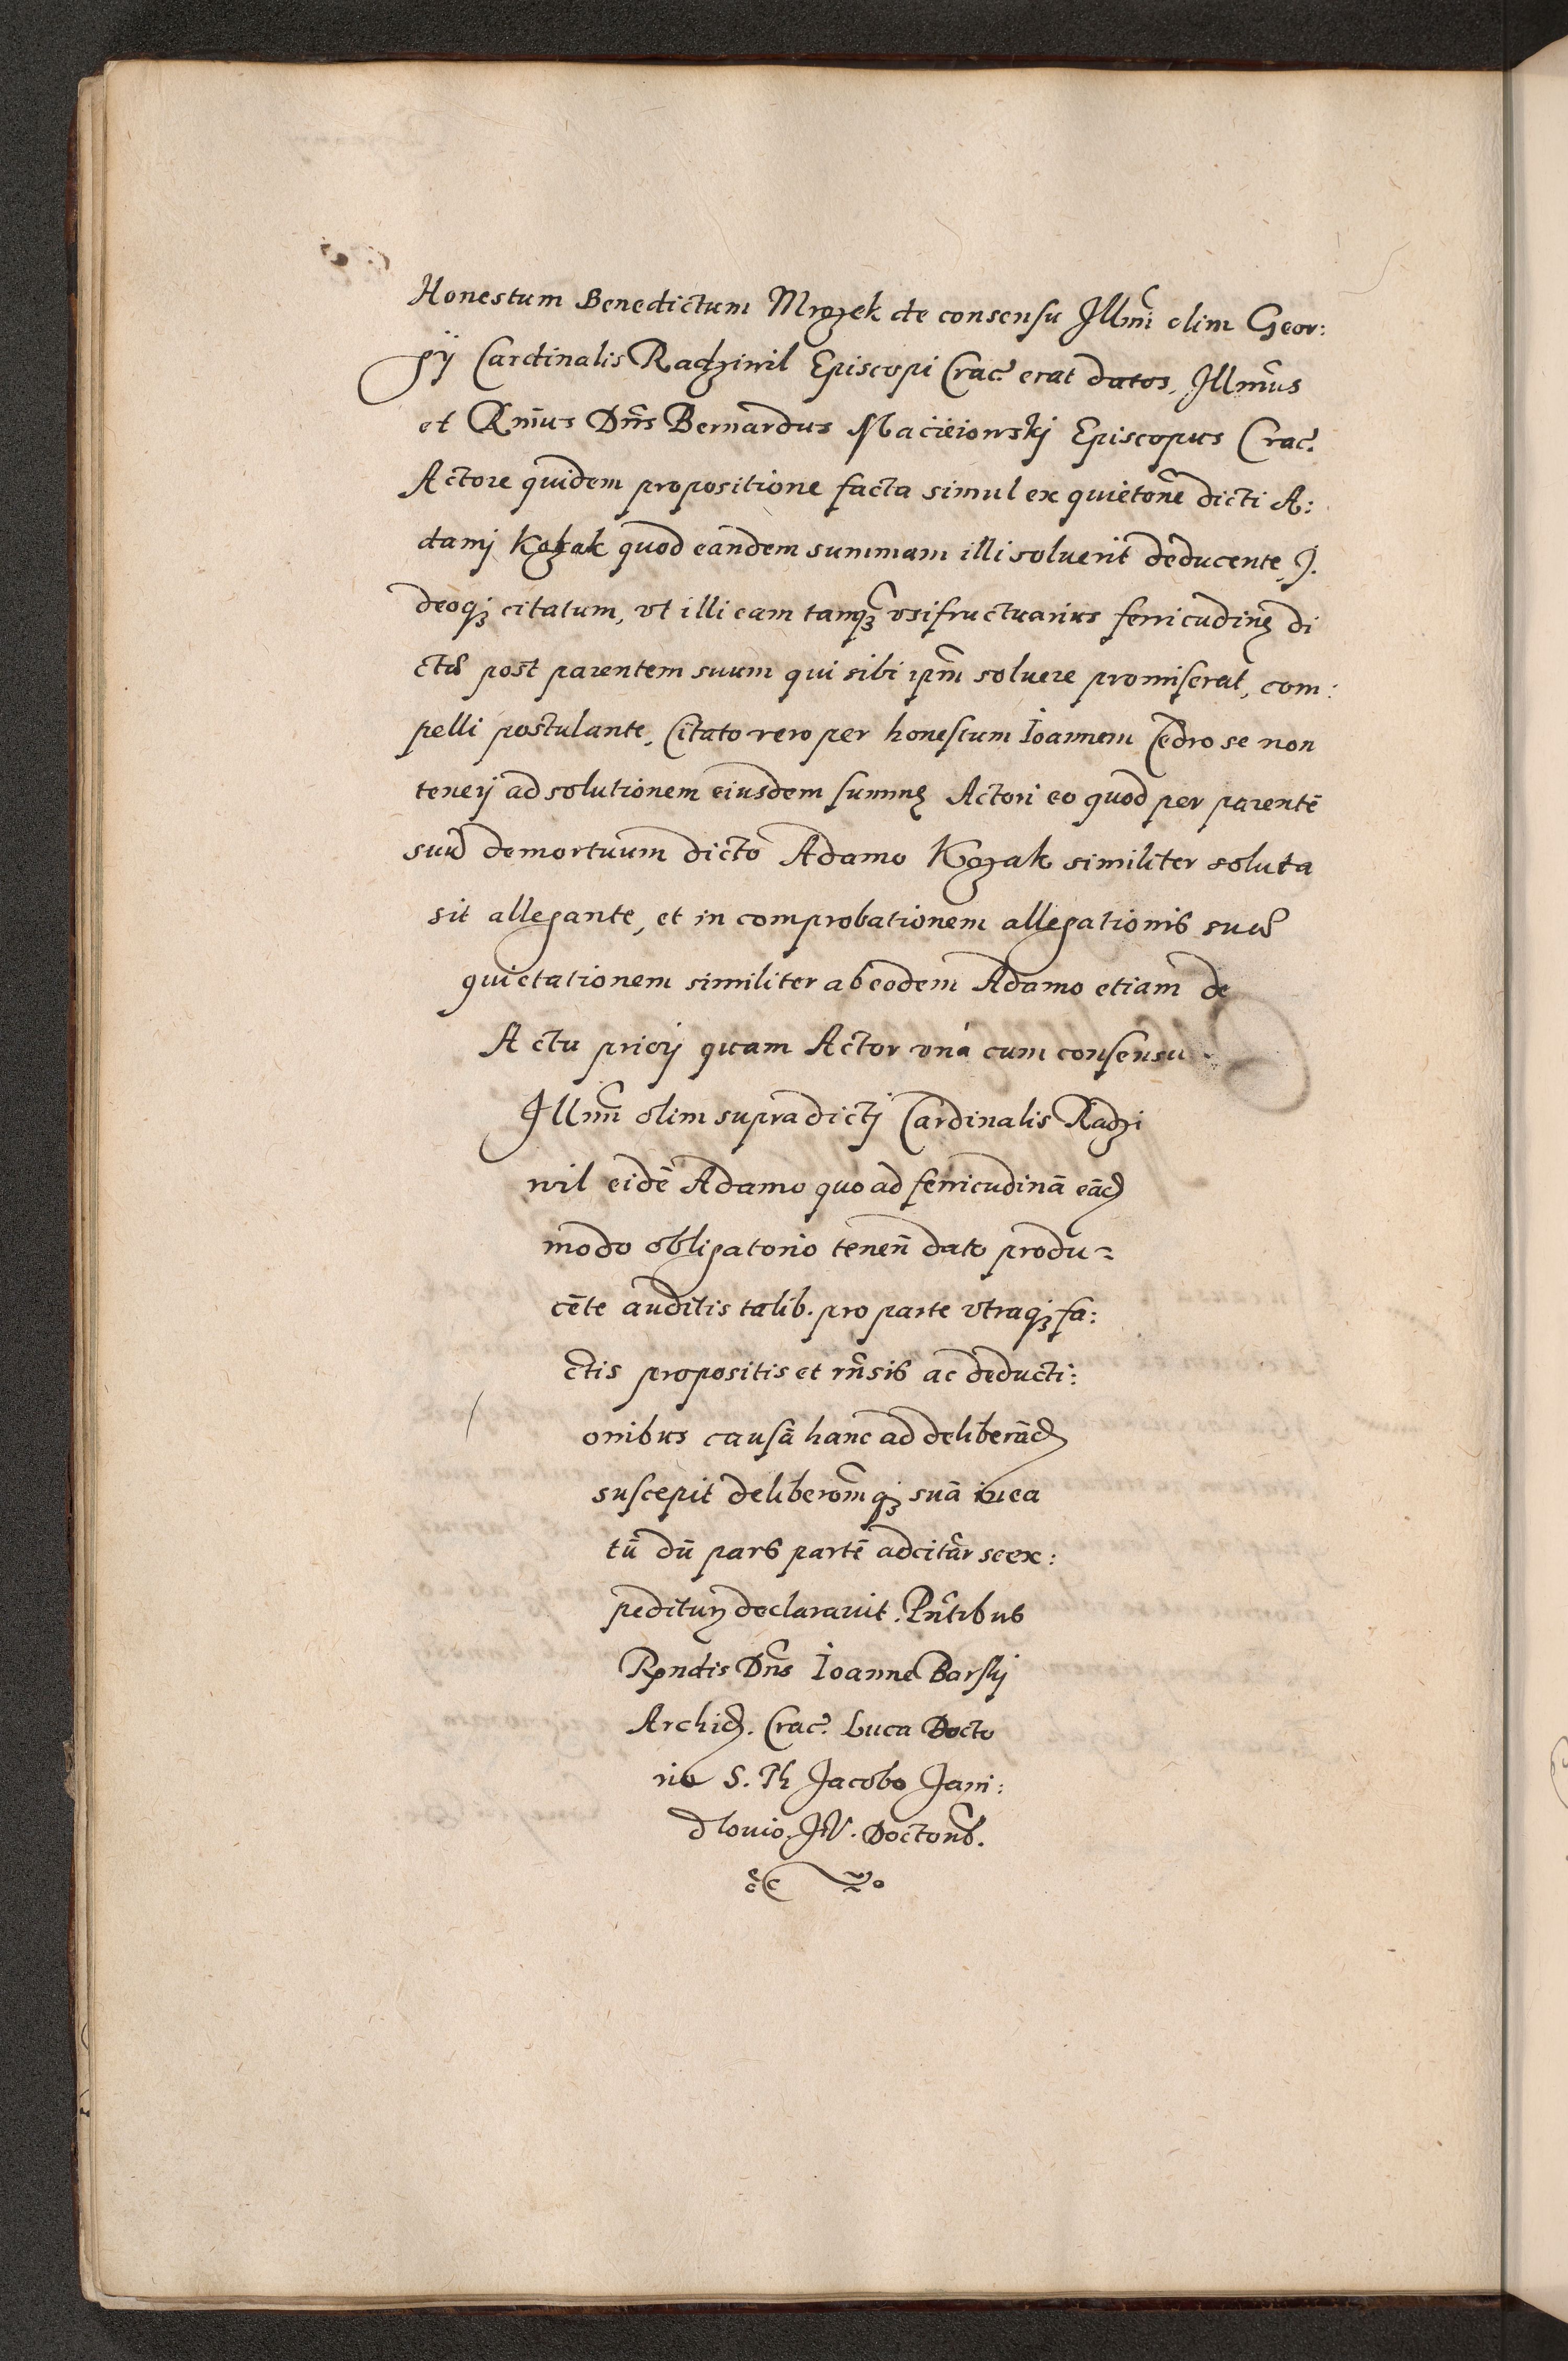 Honestum Benedictum Mrozek de consensu Illmi olim Geor:
gij Cardinalis Radziwil Episcopi Crac. erat datos, Illmus
et Rmus Dns Bernardus Macieiowskj Episcopus Crac.
Actore quidem propositione facta simul ex quietone dicti A:
damj Kozak quod eandem summam illi soluerit deducente, I.
deoqȝ citatum, vt illi eam tamqȝ vsifructuarius ferricudinę di
ctę post parentem suum qui sibi ipm soluere promiserat, com:
pelli postulante, Citato vero per honestum Ioannem Cedro se non
tenerj ad solutionem eiusdem summę Actori eo quod per parentē
suū demortuum dicto Adamo Kozak similiter soluta
sit allegante, et in comprobationem allegationis suę
quietationem similiter ab eodem Adamo etiam de
Actu priorj quam Actor vna cum consensu
Illmi olim supradictj Cardinalis Radzi
wil eidē Adamo quo ad ferricudinā eād
modo obligatorio tenen̄ dato produ=
cēte auditis talib. pro parte vtraqȝ fa:
ctis propositis et rn̄sis ac deducti:
onibus causā hanc ad deliberād
suscepit deliberomqȝ suā in ea
tū dū pars partē adcitār se ex:
peditur declarauit. Pn̄tibus
Rndis Dn̄s Ioanne Barskj
Archid. Crac. Luca Docto
rio S. Th Jacobo Jani:
dlouio. J.V. Doctorib.